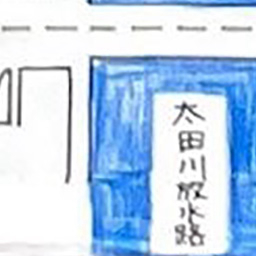 太田川放水路